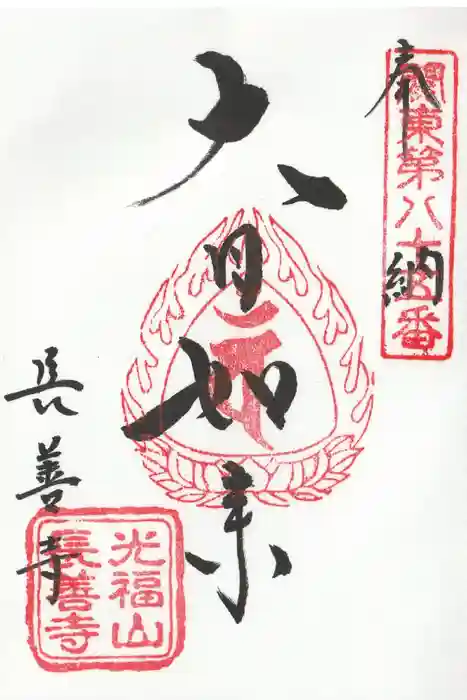 奉納
關東第八十四番
大日如来
長善寺
光福山
長善寺